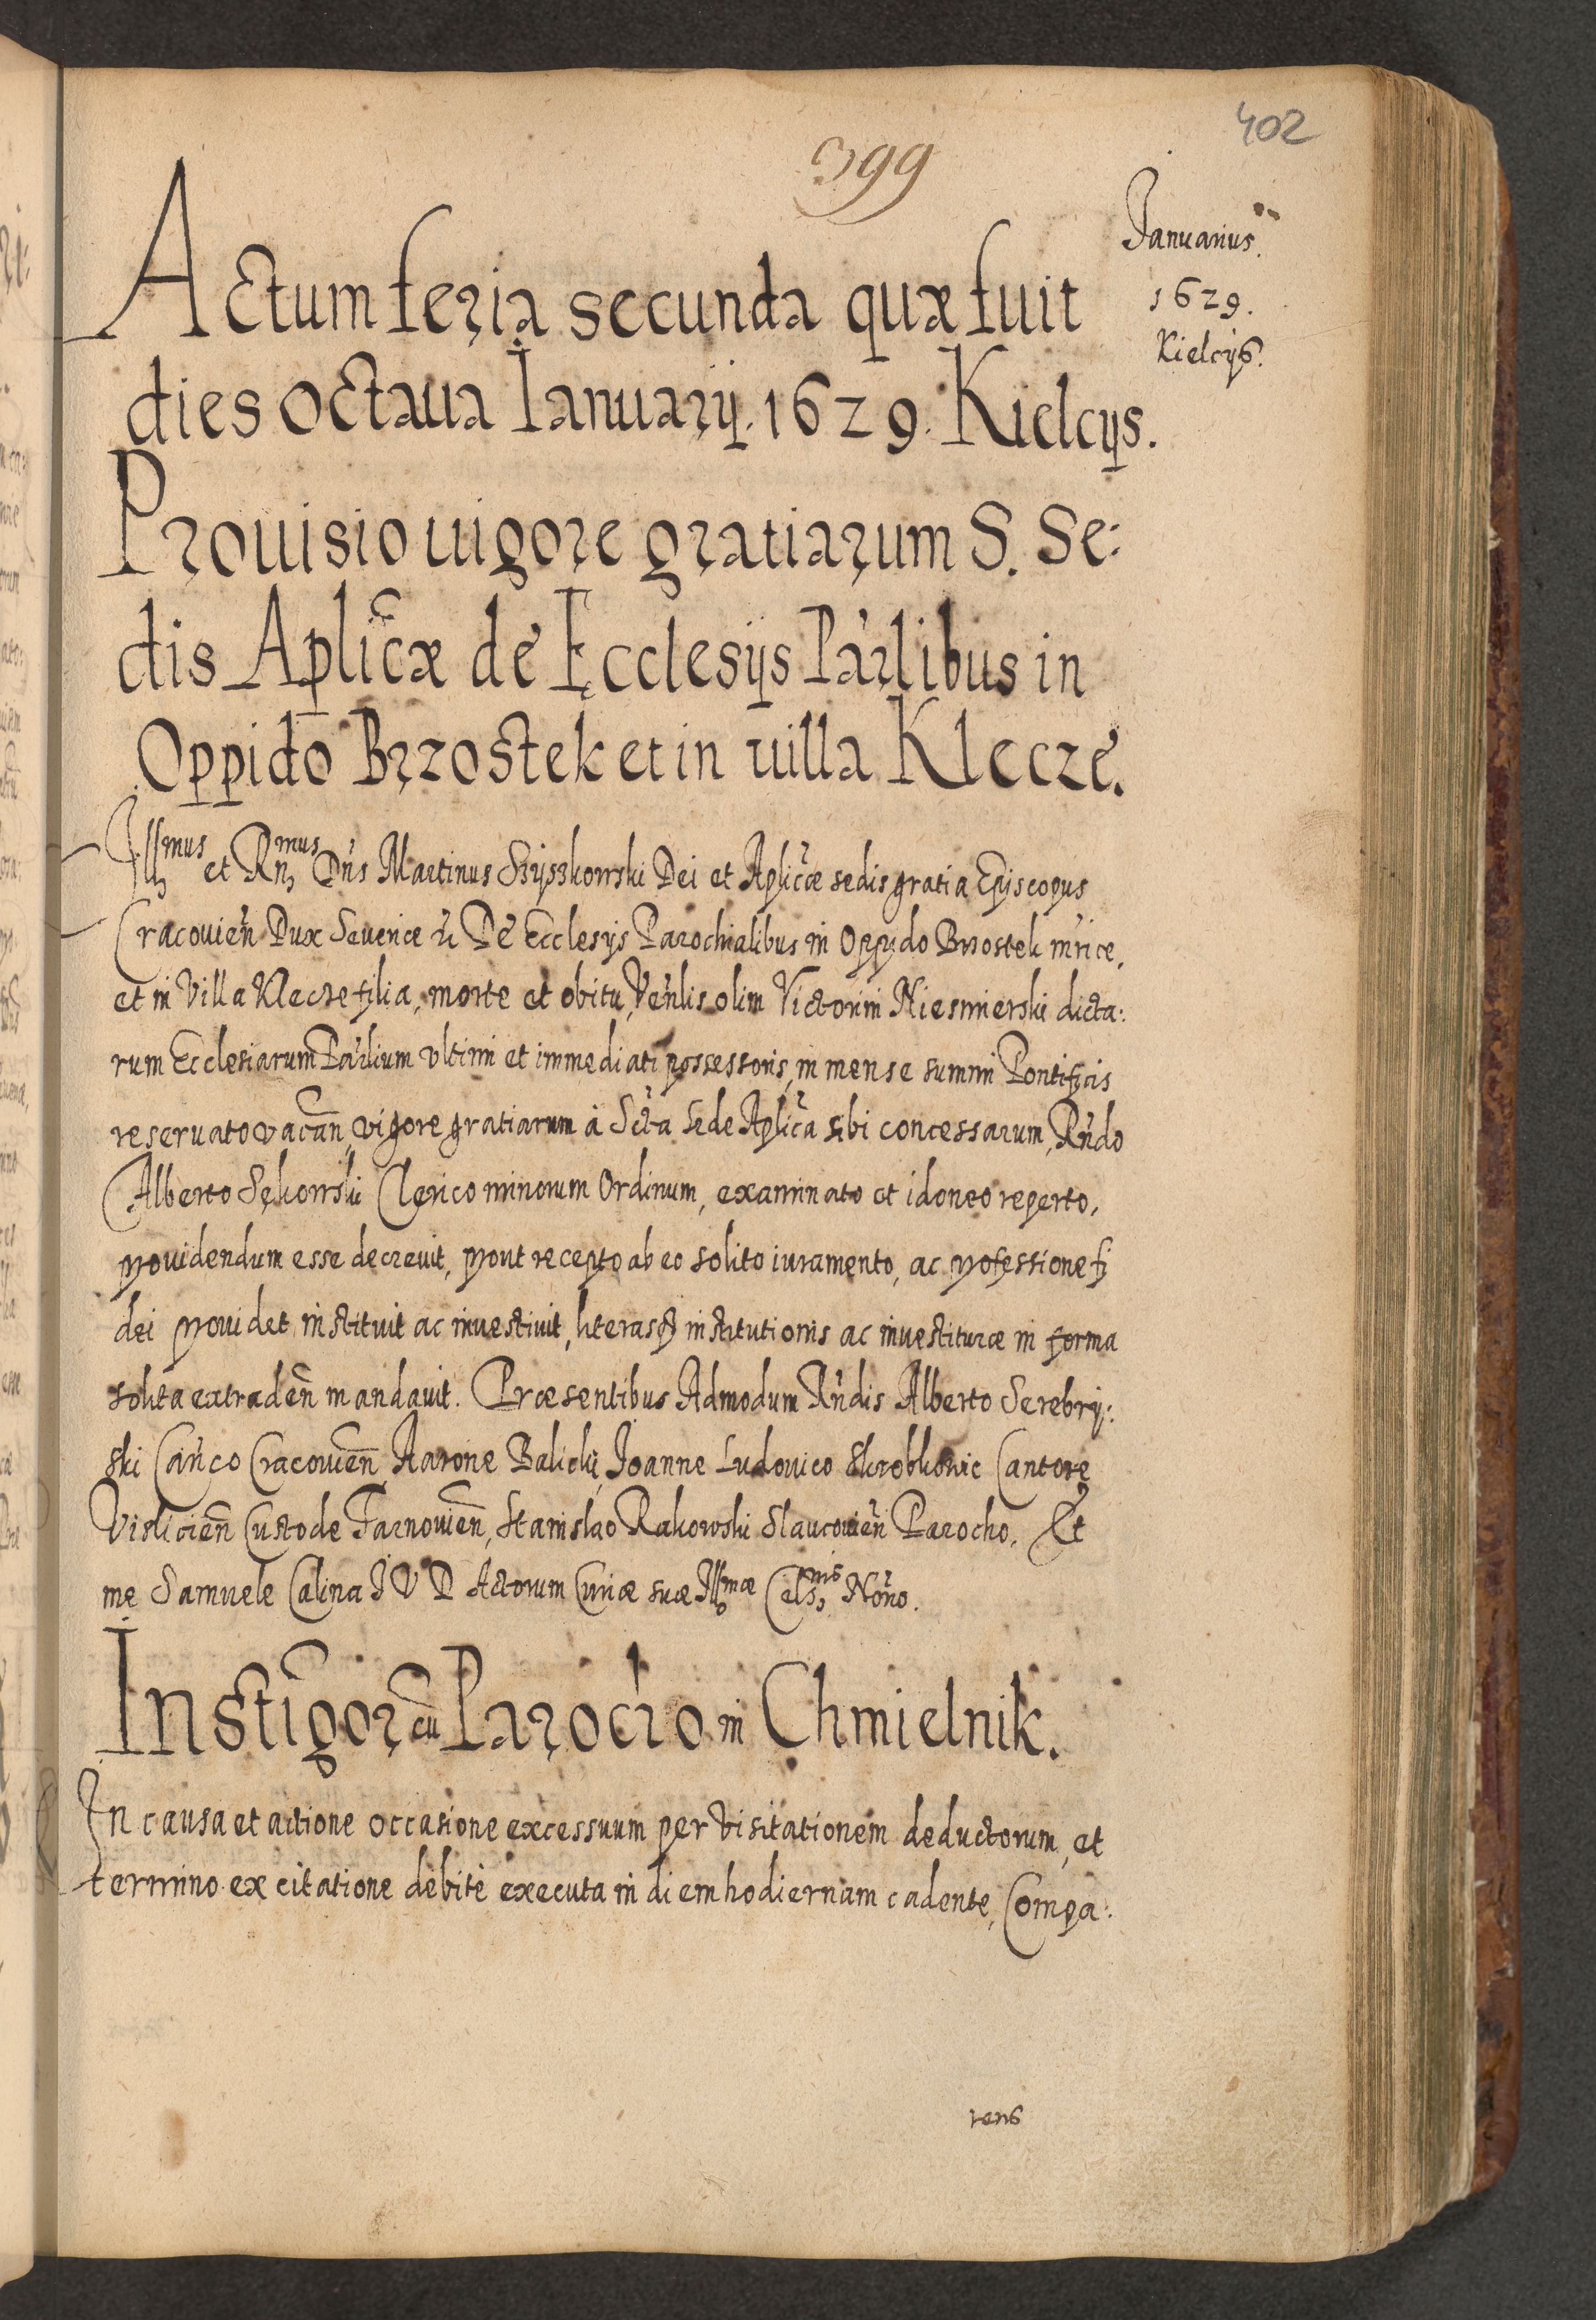 402
399
Januarius.
1629.
Kielcijs.
Actum feria secunda quæ fuit
dies octaua Ianuarij. 1629. Kielcijs.
Prouisio uigore gratiarum S. Se:
dis Aplicæ de Ecclesijs Parlibus in
Oppido Brzostek et in uilla Klecze.
Illmus et Rnmus Dns Martinus Szyszkowski Dei et Aplicæ sedis gratia Episcopus
Cracouien Dux Seueriæ &c De Ecclesijs Parochialibus in Oppido Brzostek mrice,
et in Villa Klecze filia, morte et obitu, Venlis olim Victorini Niesmierski dicta:
rum Ecclesiarum Parlium vltimi et immediati possessoris, in mense summi Pontificis
reseruato vacan, vigore gratiarum à Scta Sede Aplica sibi concessarum, Rndo
Alberto Sękowski Clerico minorum Ordinum, examinato et idoneo reperto,
prouidendum esse decreuit, prout recepto ab eo solito iuramento, ac professione fi
dei prouidet instituit ac inuestiuit, literasq institutionis ac inuestituræ in forma
solita extraden mandauit. Præsentibus Admodum Rndis Alberto Serebrij:
ski Canco Cracouien, Aarone Balicki, Joanne Ludouico Skrobkowic Cantore
Vislicien Custode Tarnouien, Stanislao Rakowski Slaucouien Parocho. Et
me Samuele Calina J V D Actorum Curiæ suæ Illmæ Celsnis Norio.
Instigor cu Parocho in Chmielnik.
In causa et actione occasione excessuum per visitationem deductorum, et
termino ex citatione debitè executa in diem hodiernam cadente, Compa:
rens